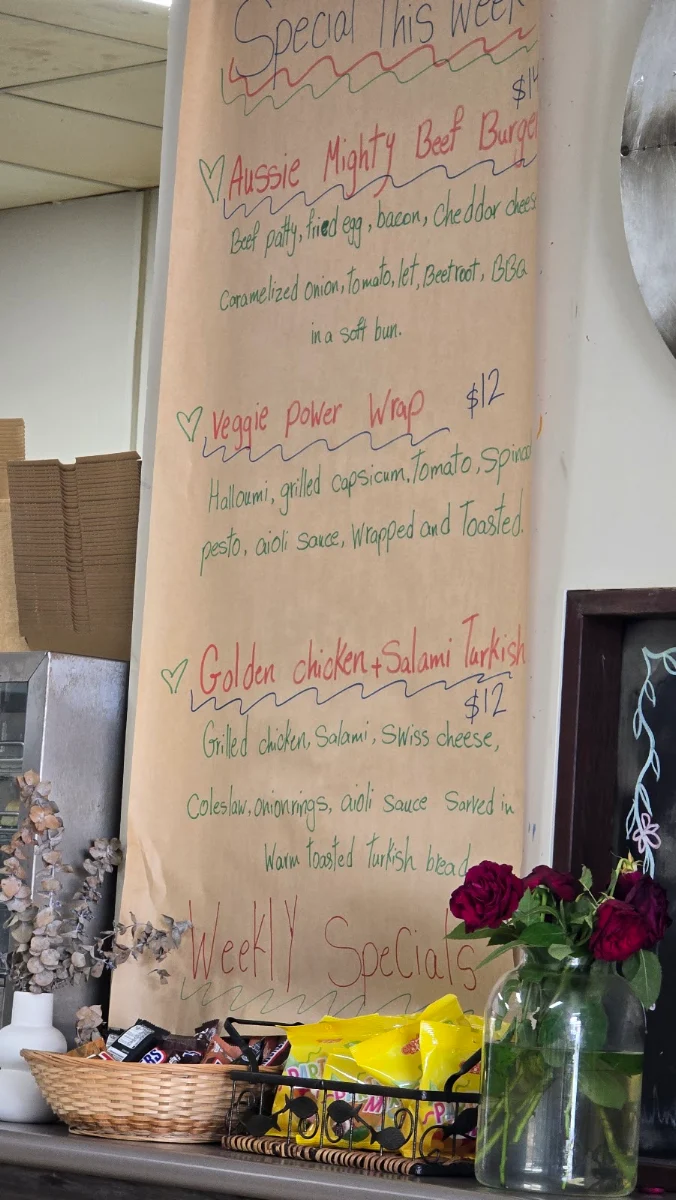 Special This Week
$14
Aussie Mighty Beef Burge
Beef patty, fried egg, bacon, cheddor chees
caramelized onion, tomato, let, Beetroot, BBQ
in a soft bun.
Veggie power Wrap $12
Halloumi, grilled capsicum, Tomato, Spinac
pesto, aioli sauce, Wrapped and Toasted.
Golden chicken + Salami Turkish
$12
Grilled chicken, Salami, Swiss cheese,
Coleslaw, onion rings, aioli sauce Sarved in
Warm toasted Turkish bread
Weekly Specials